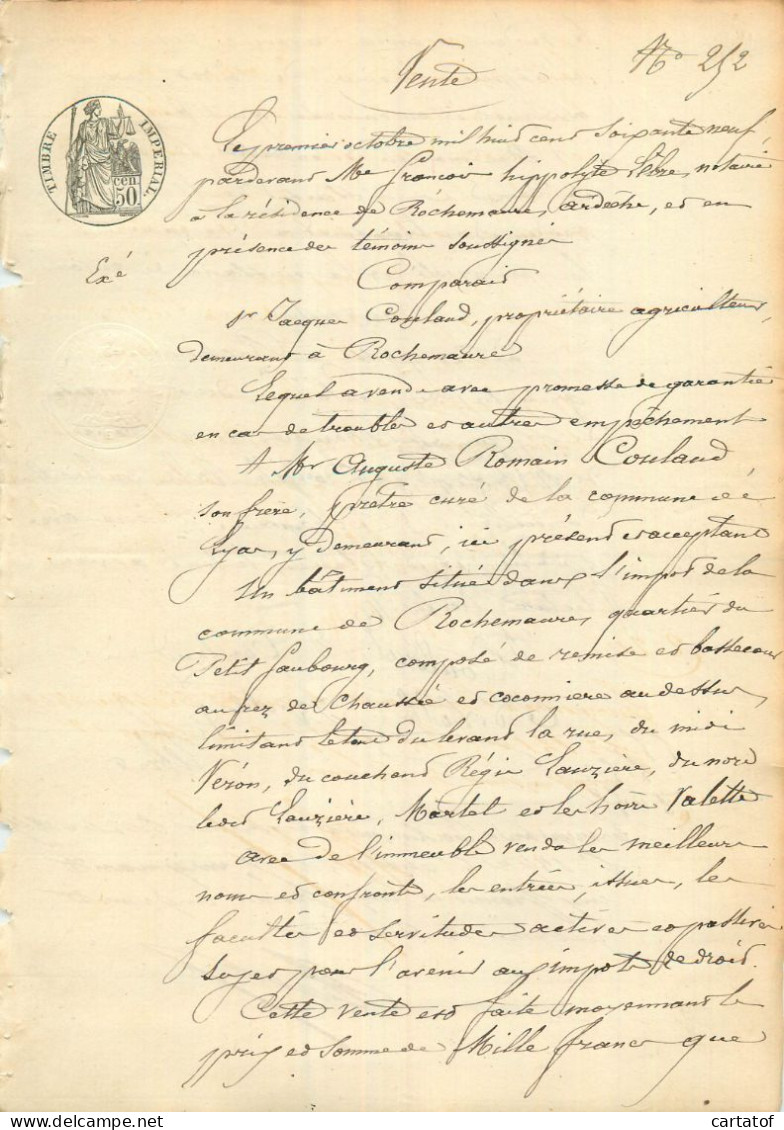 Vente
N° 252
TIMBRE IMPERIAL.
50 cen
Le premier octobre mil huit cent soixante neuf,
pardevant Me François hippolyte notaire
à la résidence de Rochemaure, ardèche, et en
présence des témoins soussignés
Exé
Comparait
Sr Jacques Coulaud, propriétaire agriculteur,
demeurant à Rochemaure
Lequel a vendu avec promesse de garantie
en cas de trouble et autre empêchement
A Mr Auguste Romain Coulaud
son frère, prêtre curé de la commune de
Lyas, y demeurant, ici présent et acceptant
Un bâtiment situé dans l'impot de la
commune de Rochemaure, quartier du
Petit faubourg, composé de remise et bassecour
au rez de chaussée et coconnière au dessus,
limitant le tout du levant la rue, du midi
Véron, du couchant Régis Lauzière, du nord
ledit Lauzière, Martel et les hoirs Valette
avec de l'immeuble vendu les meilleurs
noms et confronts, les entrées, issues, les
facultés et servitudes actives et passives
sujet pour l'avenir aux impots de droit.
Cette vente est faite moyennant le
prix et somme de Mille francs que
cartatof